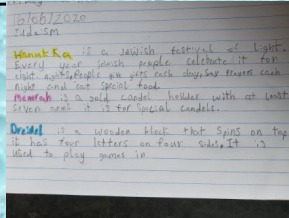 16/06/2020
Judaism
Hanukka is a Jewish festival of light.
Every year Jewish people celebrate it for
eight nights, People give gifts each day, Say Prayers each
night and eat special food.
Menorah is a gold candel holder with at least
seven arms it is for special candels.
Dreidel is a wooden block that spins on top
it has four letters on four sides. It is
used to play games in